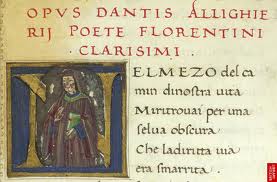 OPVS DANTIS ALLIGHIE
RIJ POETE FLORENTINI
CLARISIMI .
NEL MEZO del ca
min di nostra vita
Mi ritrouai per una
selua obscura
Che la diritta uia
era smarrita .